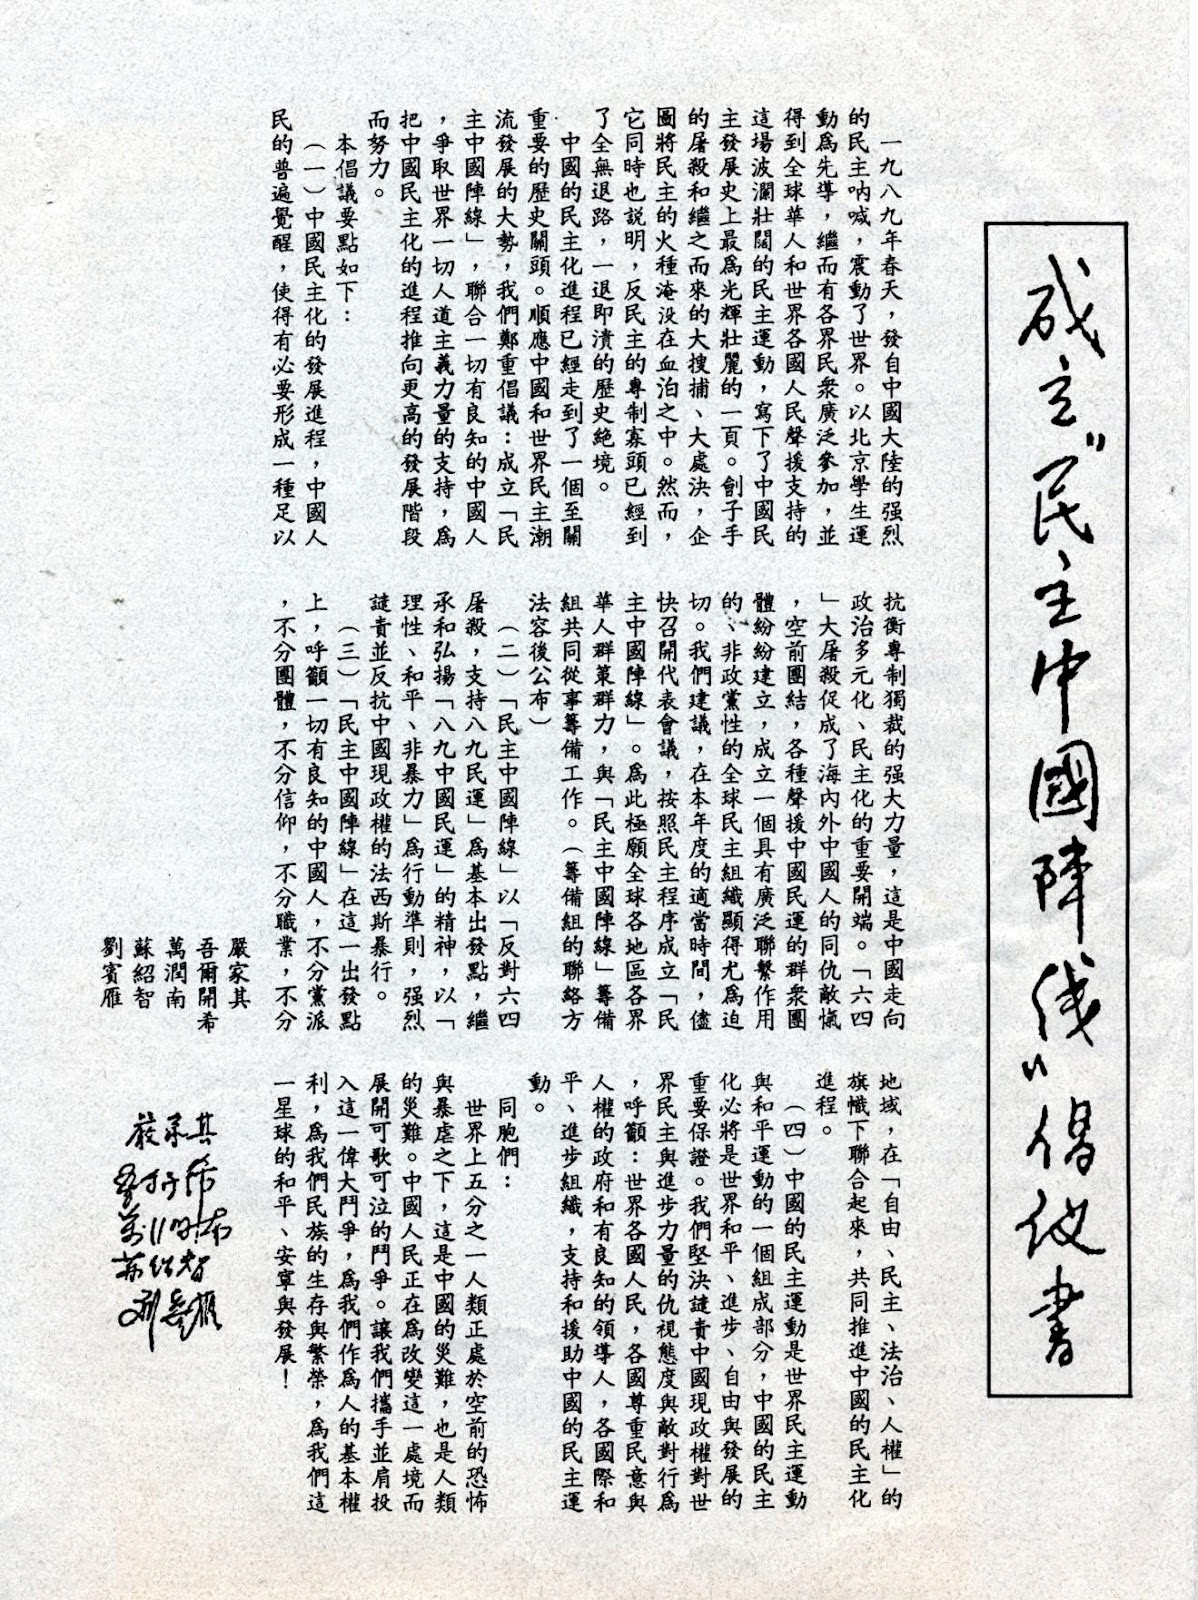 成立"民主中國陣线"倡仪書
一九八九年春天，發自中國大陸的强烈
的民主吶喊，震動了世界。以北京學生運
動爲先導，繼而有各界民衆廣泛參加，並
得到全球華人和世界各國人民聲援支持的
這場波瀾壯闊的民主運動，寫下了中國民
主發展史上最爲光輝壯麗的一頁。劊子手
的屠殺和繼之而來的大搜捕、大處決，企
圖將民主的火種淹没在血泊之中。然而，
它同時也説明，反民主的專制寡頭已經到
了全無退路，一退即潰的歷史絶境。
中國的民主化進程已經走到了一個至關
重要的歷史關頭。順應中國和世界民主潮
流發展的大勢，我們鄭重倡議：成立「民
主中國陣線」，聯合一切有良知的中國人
，爭取世界一切人道主義力量的支持，爲
把中國民主化的進程推向更高的發展階段
而努力。
本倡議要點如下：
（一）中國民主化的發展進程，中國人
民的普遍覺醒，使得有必要形成一種足以
抗衡專制獨裁的强大力量，這是中國走向
政治多元化、民主化的重要開端。「六四
」大屠殺促成了海內外中國人的同仇敵愾
，空前團結，各種聲援中國民運的群衆團
體紛紛建立，成立一個具有廣泛聯繫作用
的、非政黨性的全球民主組織顯得尤爲迫
切。我們建議，在本年度的適當時間，儘
快召開代表會議，按照民主程序成立「民
主中國陣線」。爲此極願全球各地區各界
華人群策群力，與「民主中國陣線」籌備
組共同從事籌備工作。（籌備組的聯絡方
法容後公布）
（二）「民主中國陣線」以「反對六四
屠殺，支持八九民運」爲基本出發點，繼
承和弘揚「八九中國民運」的精神，以「
理性、和平、非暴力」爲行動準則，强烈
譴責並反抗中國現政權的法西斯暴行。
（三）「民主中國陣線」在這一出發點
上，呼籲一切有良知的中國人，不分黨派
，不分團體，不分信仰，不分職業，不分
地域，在「自由、民主、法治、人權」的
旗幟下聯合起來，共同推進中國的民主化
進程。
（四）中國的民主運動是世界民主運動
與和平運動的一個組成部分，中國的民主
化必將是世界和平、進步、自由與發展的
重要保證。我們堅決譴責中國現政權對世
界民主與進步力量的仇視態度與敵對行爲
，呼籲：世界各國人民，各國尊重民意與
人權的政府和有良知的領導人，各國際和
平、進步組織，支持和援助中國的民主運
動。
同胞們：
世界上五分之一人類正處於空前的恐怖
與暴虐之下，這是中國的災難，也是人類
的災難。中國人民正在爲改變這一處境而
展開可歌可泣的鬥爭。讓我們攜手並肩投
入這一偉大鬥爭，爲我們作爲人的基本權
利，爲我們民族的生存與繁榮，爲我們這
一星球的和平、安寧與發展！
嚴家其
吾爾開希
萬潤南
蘇紹智
劉賓雁
严家其
万润南
苏绍智